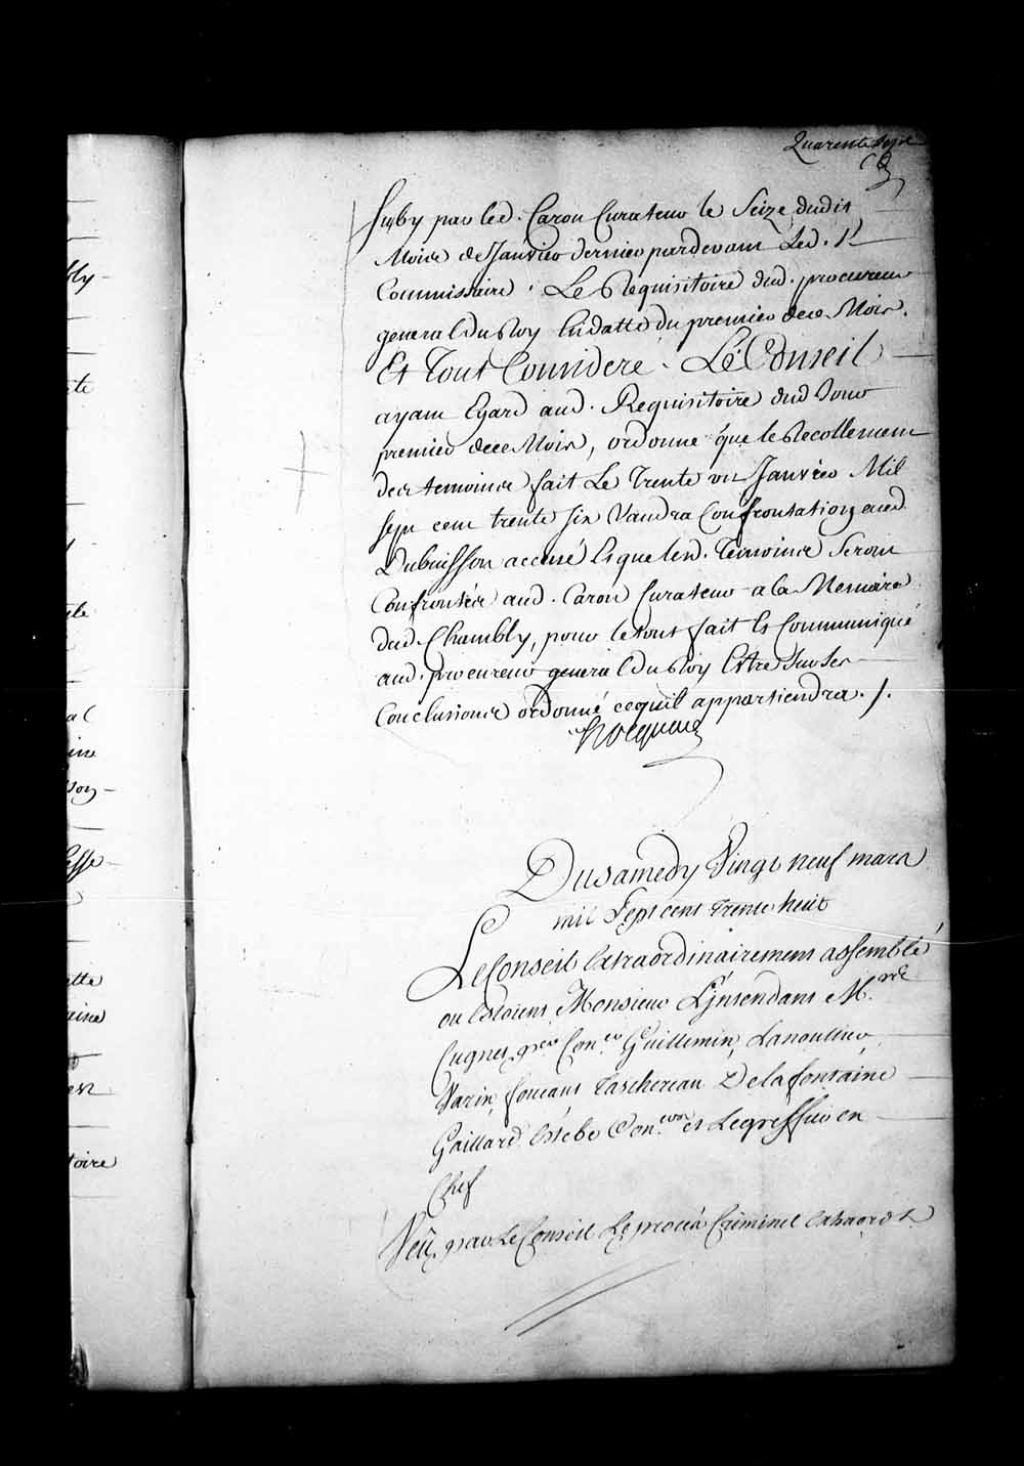 Quarente Sept
Suby par led. Caron Curateur le Seize dudit
Mois de Janvier dernier pardevant Led. Sr
Commissaire. Le Requisitoire dud. procureur
general du Roy En datte du premier de ce Mois.
Et Tout Considere. Le Conseil
ayant Egard aud. Requisitoire dud Jour
premier de ce Mois, ordonne que le Recollement
des temoins fait Le Trente un Janvier Mil
sept cent trente six Vaudra Confrontation aud
Dubuisson accusé Et que lesd. Temoins Seront
Confrontés aud. Caron Curateur a la Memoire
dud. Chambly, pour le tout fait Et Communiqué
aud. procureur general du Roy Estre Sur Ses
Conclusions ordonné ce quil appartiendra ./.
hocquart
Du Samedy Vingt neuf mars
mil Sept cent trente huit
Le Conseil Extraordinairement assemblé
ou Estoient Monsieur L'jntendant M.
Cugnet per Con.er Guillimin, Lanoullier
Varin, foucaut Taschereau Delafontaine
Gaillard Estebe Con.ers et Le greffier en
Chef
Veu par Le Conseil Le procés Criminel Extraord.t
hly
te
al
ine
son
esse
ette
aine
toire